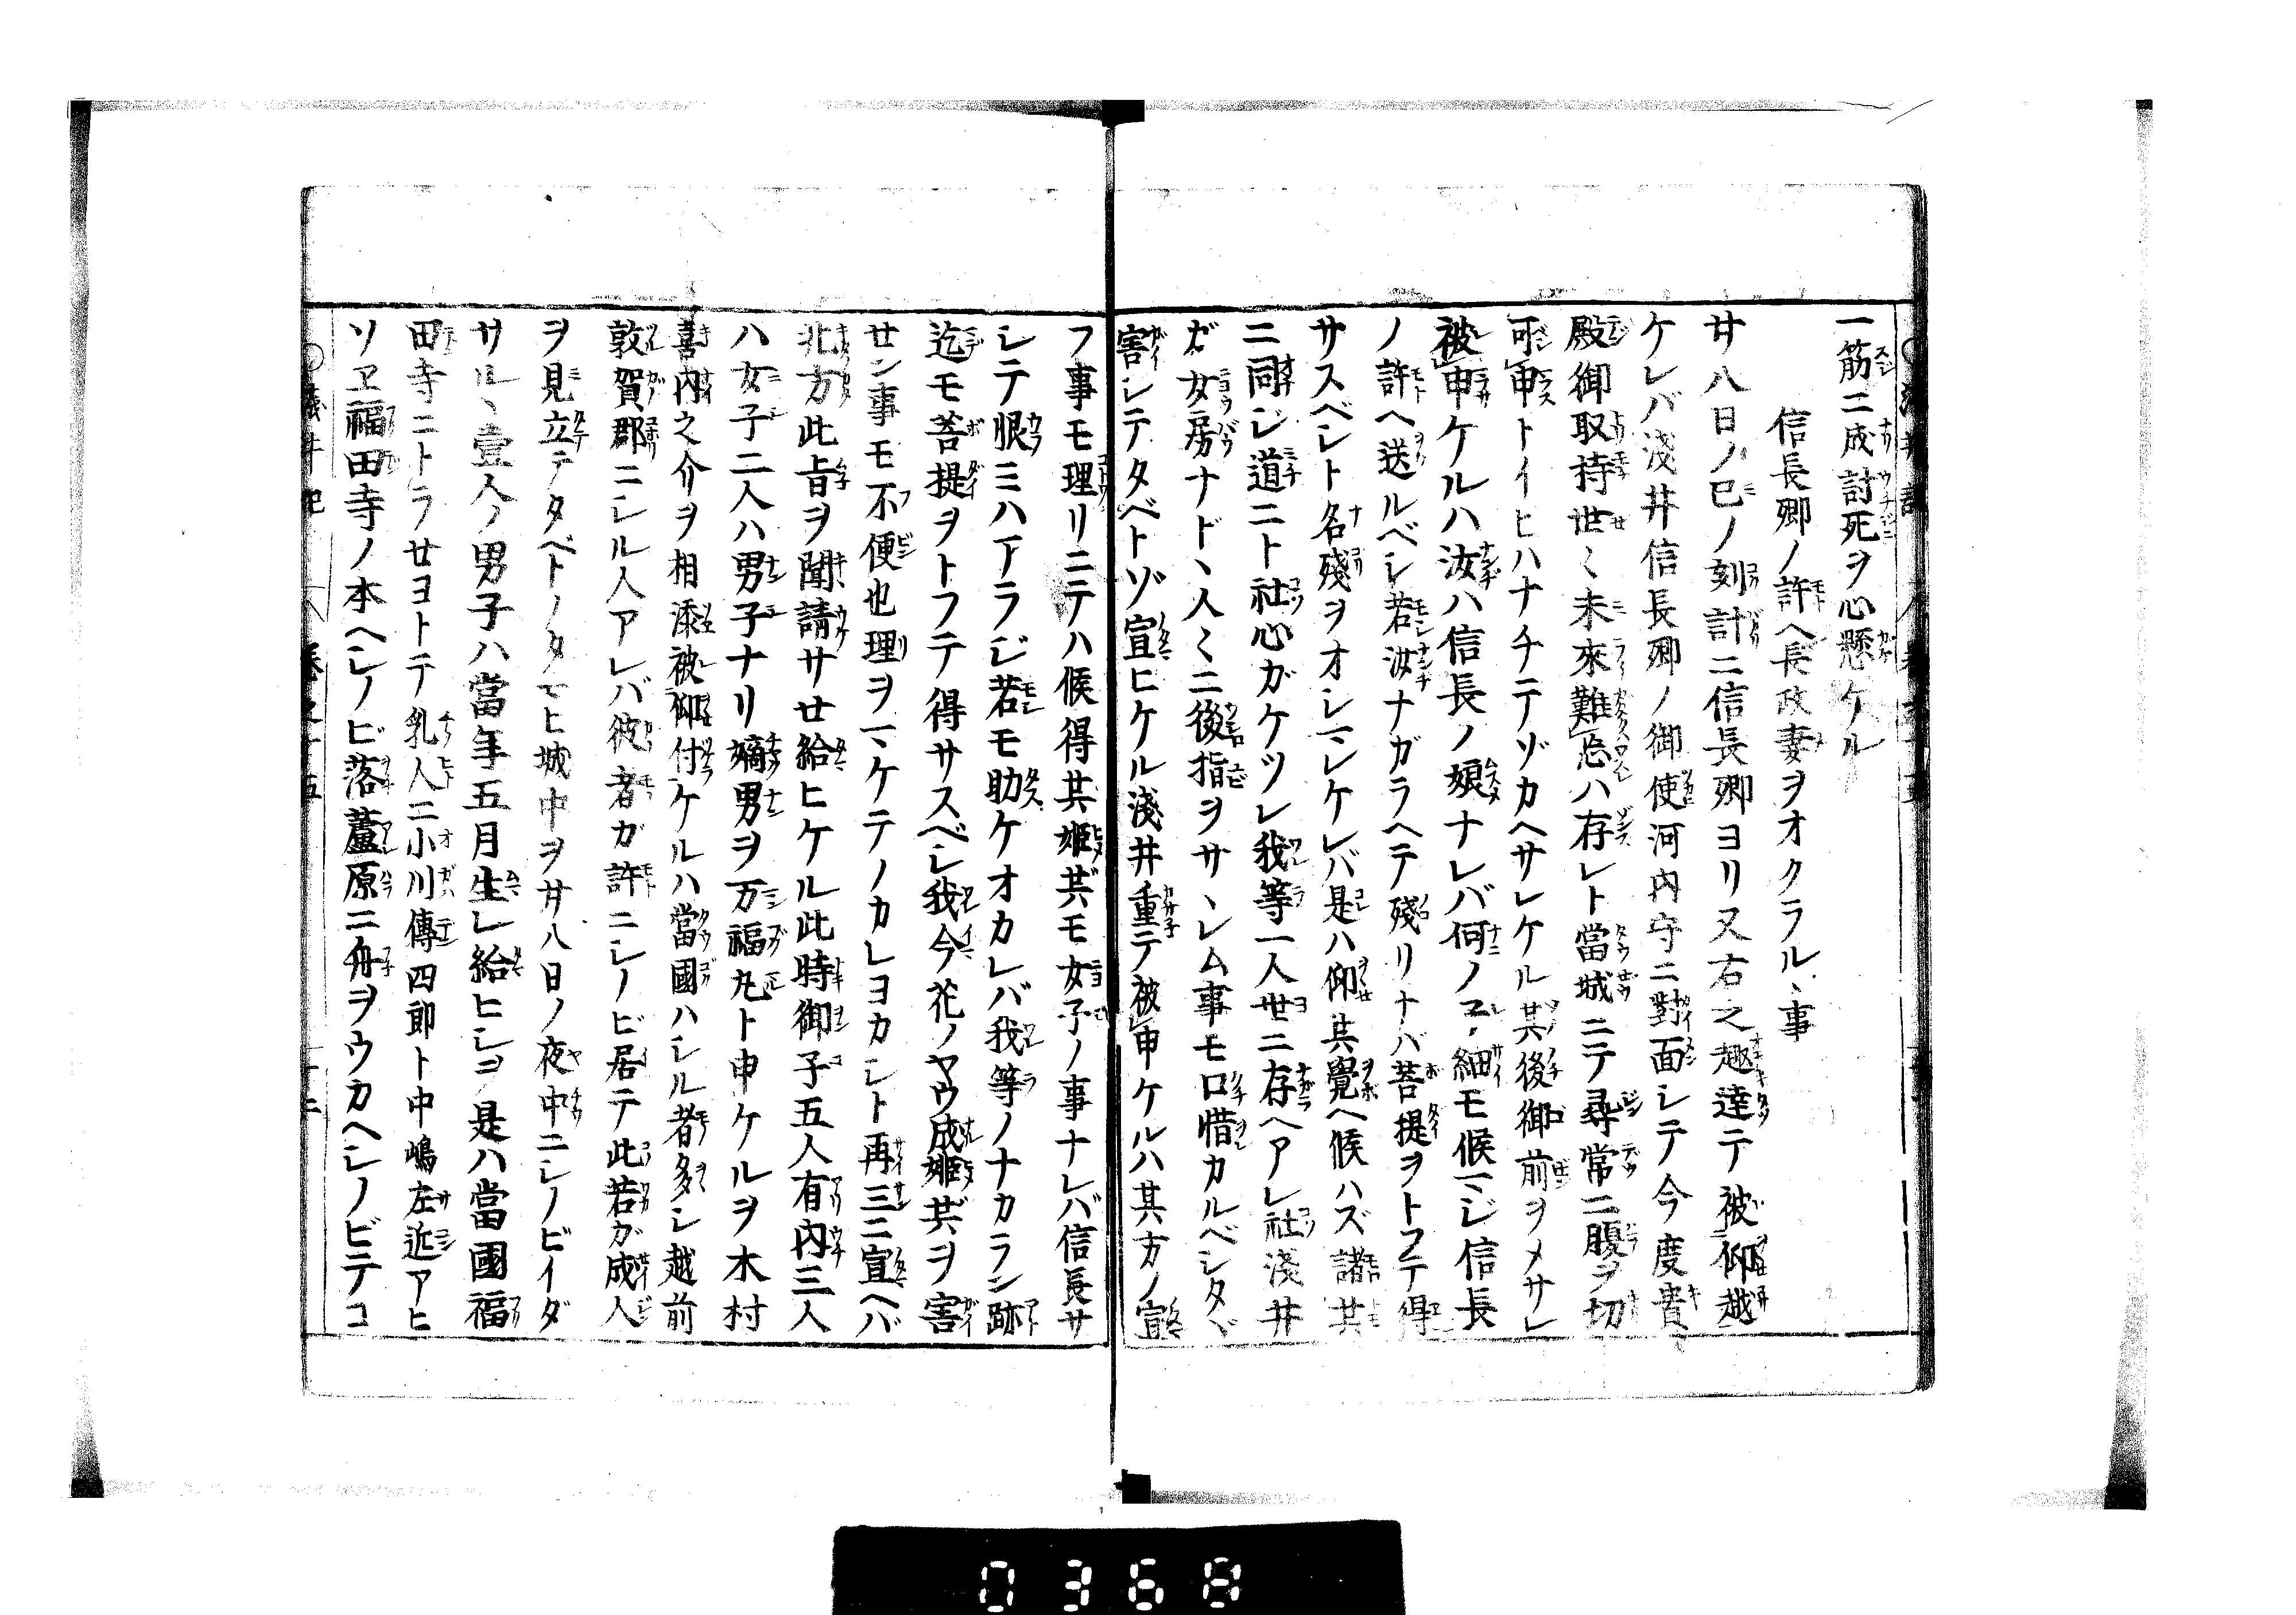 一筋ニ成討死ヲ心懸ケル
信長卿ノ許ヘ長政妻ヲオクラルヽ事
廿八日ノ巳ノ刻計ニ信長卿ヨリ又右之趣達テ被仰越
ケレバ淺井信長卿ノ御使河内守ニ對面シテ今度貴
殿御取持世〻未來難忘ハ存レト當城ニテ尋常ニ腹ヲ切
可申トイヒハナチテゾカヘサレケル其後御前ヲメサレ
被申ケルハ汝ハ信長ノ娘ナレバ何ノ子細モ候マジ信長
ノ許ヘ送ルベシ若汝ナガラヘテ殘リナバ菩提ヲトフテ得
サスベシト名殘ヲオシマレケレバ是ハ仰共覺ヘ候ハズ諸共
ニ同ジ道ニト社心ガケツレ我等一人世ニ存ヘアレ社淺井
ガ女房ナドヽ人〻ニ後指ヲサヽレム事モ口惜カルベシタヾ
害シテタベトゾ宣ヒケル淺井重テ被申ケルハ其方ノ宣
フ事モ理リニテハ候得其姫共モ女子ノ事ナレバ信長サ
シテ恨ミハアラジ若モ助ケオカレバ我等ノナカラン跡
迄モ菩提ヲトフテ得サスベシ我今花ノヤウ成姫共ヲ害
セン事モ不便也理ヲマケテノカレヨカシト再三ニ宣ヘバ
北方此旨ヲ聞請サセ給ヒケル此時御子五人有内三人
ハ女子二人ハ男子ナリ嫡男ヲ万福丸ト申ケルヲ木村
喜内之介ヲ相添被仰付ケルハ當國ハシル者多シ越前
敦賀郡ニシル人アレバ彼者ガ許ニシノビ居テ此若ガ成人
ヲ見立テタベトノタマヒ城中ヲ廿八日ノ夜中ニシノビイダ
サルヽ壹人ノ男子ハ當年五月生レ給ヒシヲ是ハ當國福
田寺ニトラセヨトテ乳人ニ小川傳四郎ト中嶋左近アヒ
ソヱ福田寺ノ本ヘシノビ落蘆原ニ舟ヲウカヘシノビテコ
0368